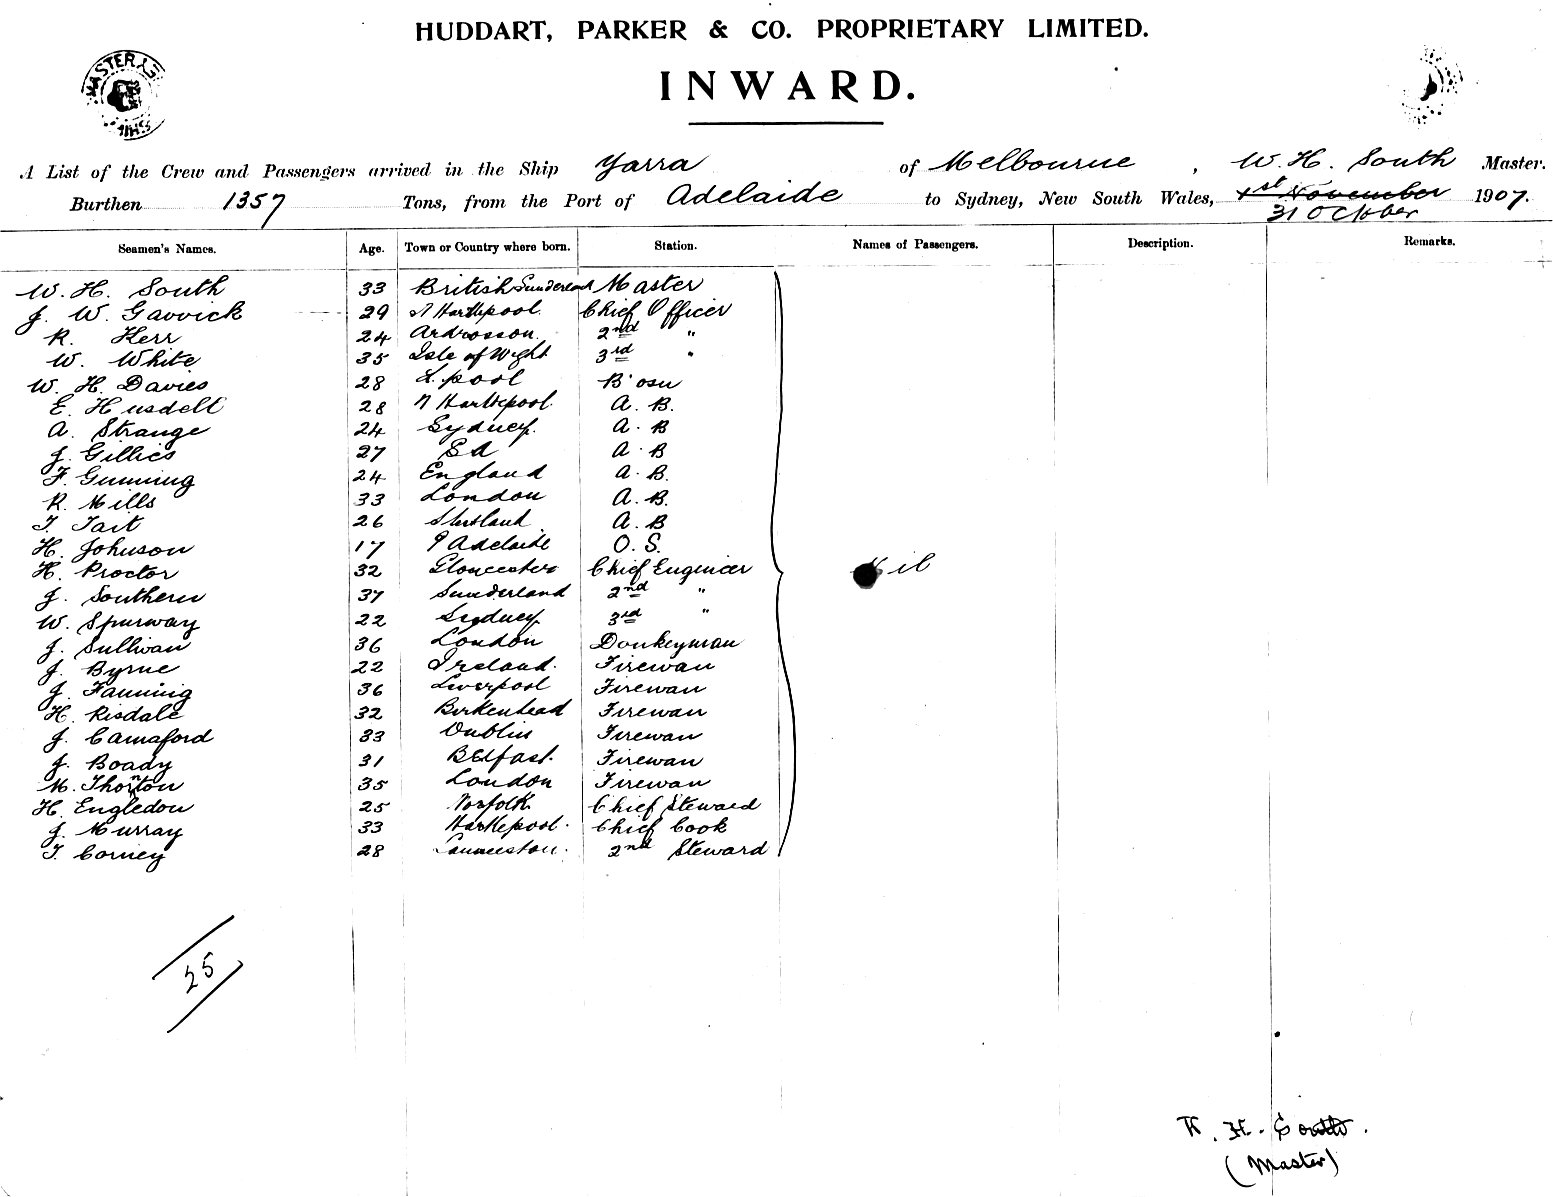 HUDDART, PARKER & CO. PROPRIETARY LIMITED.
INWARD.
MASTER
A List of the Crew and Passengers arrived in the Ship Yarra of Melbourne, W. H. South Master.
Burthen 1357 Tons, from the Port of Adelaide to Sydney, New South Wales, 1st November 1907.
31 October
Seamen's Names. Age. Town or Country where born. Station. Names of Passengers. Description. Remarks.
W. H. South 33 British Sunderland Master
J. W. Gavvick 29 N Hartlepool. Chief Officer
R. Kerr 24 Ardrossan. 2nd "
W. White 35 Isle of Wight 3rd "
W. H. Davies 28 L. pool B'osn
E. Husdell 28 N Hartlepool. A. B.
A. Strange 24 Sydney. A. B
J. Gillies 27 S A A. B
F. Gunning 24 England A. B.
R. Mills 33 London A. B.
T. Tait 26 Shetland. A. B
H. Johnson 17 P Adelaide O. S.
H. Proctor 32 Gloucester Chief Engineer Nil
J. Southern 37 Sunderland 2nd "
W. Spurway 22 Sydney 3rd "
J. Sullivan 36 London Donkeyman
J. Byrne 22 Ireland. Fireman
J. Fanning 36 Liverpool Fireman
H. Risdale 32 Birkenhead Fireman
J. Camaford 33 Dublin Fireman
J. Boady 31 Belfast. Fireman
M. Thornton 35 London Fireman
H. Engledon 25 Norfolk. Chief Steward
J. Murray 33 Hartlepool. Chief Cook
T. Corney 28 Launceston. 2nd Steward
25
W. H. South.
(Master)